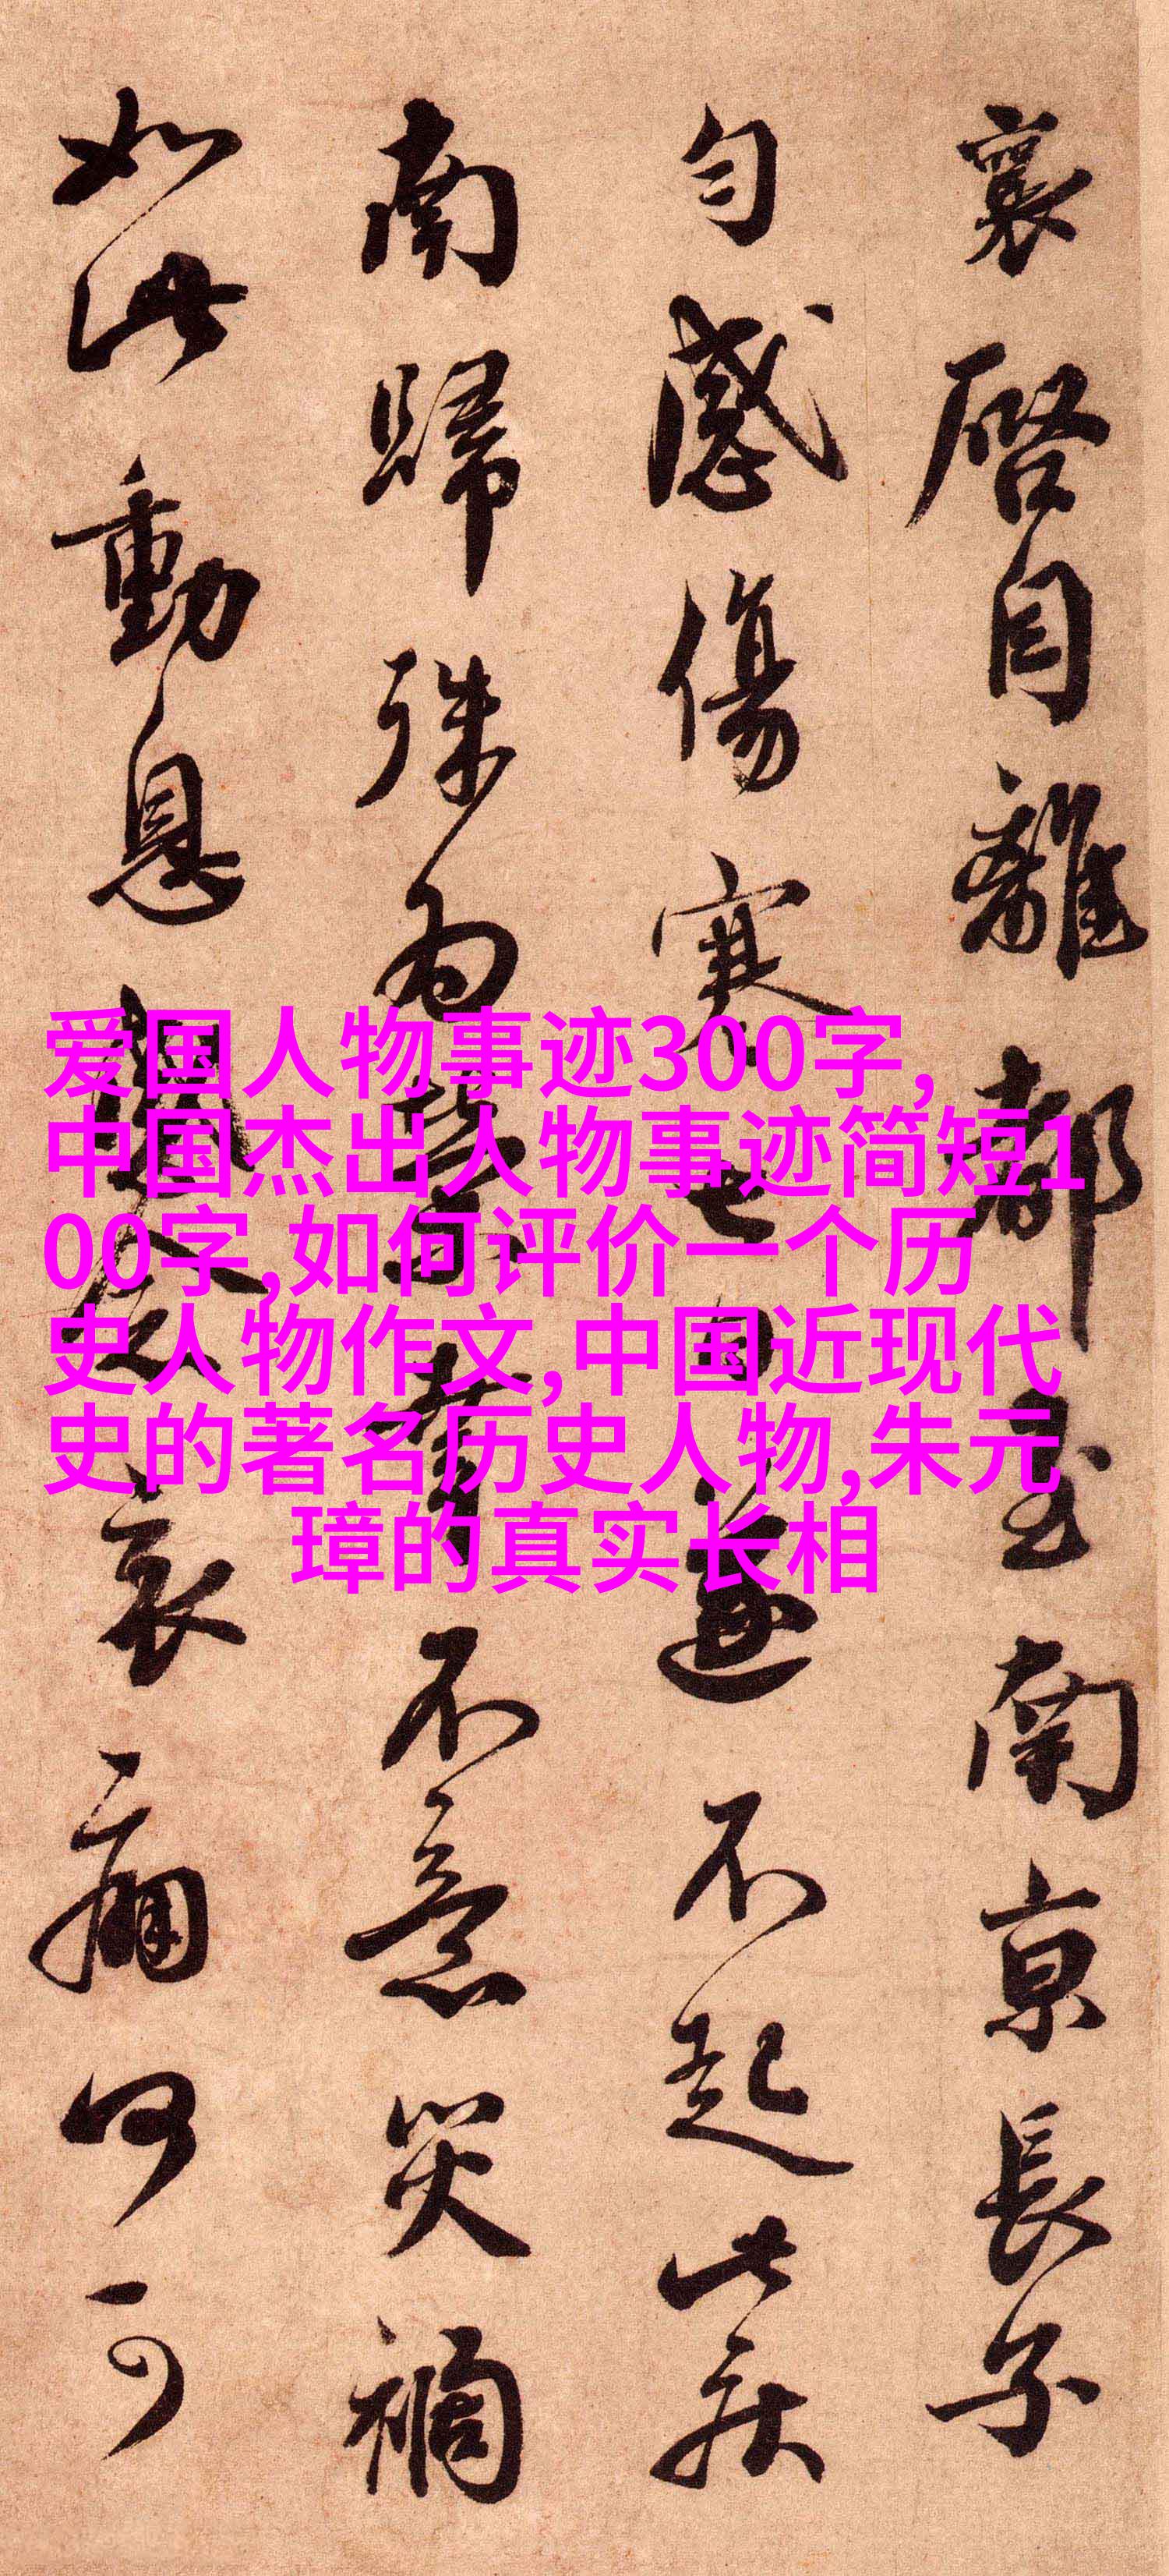 襄啓自離都至南京長子
勻感傷寒七日遂不起此疾
南歸殊為不意災禍
如此動息哀痛何可
爱国人物事迹300字,
中国杰出人物事迹简短1
00字,如何评价一个历
史人物作文,中国近现代
史的著名历史人物,朱元
璋的真实长相